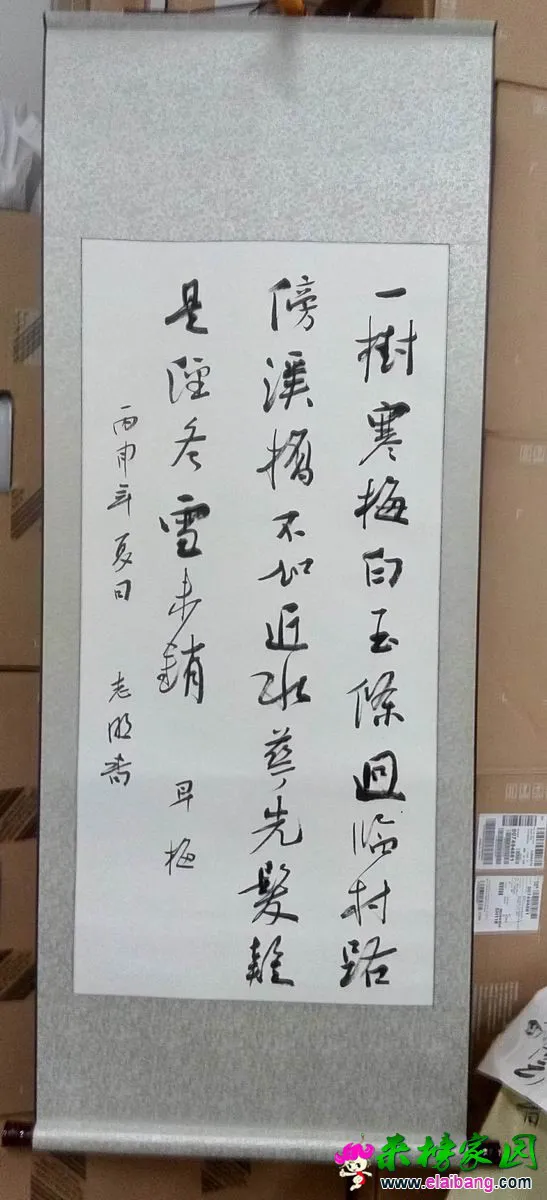 一樹寒梅白玉條迴临村路
傍溪橋不知近水華先髮疑
是經冬雪未銷 早梅
丙申年夏日 老明書
来榜家园
www.elaibang.com